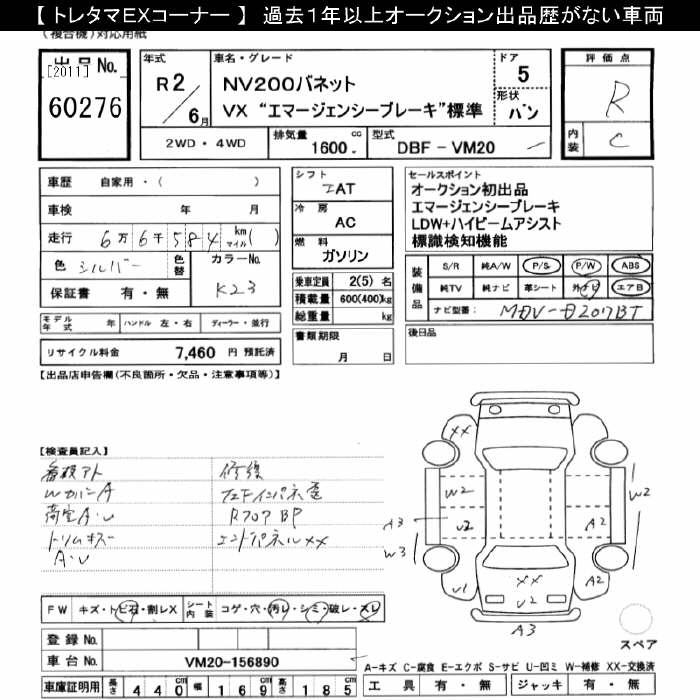 【 トレタマEXコーナー 】 過去１年以上オークション出品歴がない車両
(複合機)対応用紙
出品No.
[2011]
60276
年式
R2/6月
車名・グレード
NV200バネット
VX “エマージェンシーブレーキ”標準
ドア
5
形状
バン
評価点
R
内装
C
2WD・4WD
排気量
1600 cc
型式
DBF - VM20
車歴 自家用・( )
車検 年 月
走行 6万6千584 km マイル( )
色 シルバー 色替
カラーNo.
K23
保証書 有・無
シフト
IAT
冷房
AC
燃料
ガソリン
乗車定員 2(5) 名
積載量 600(400)kg
総重量 kg
セールスポイント
オークション初出品
エマージェンシーブレーキ
LDW+ハイビームアシスト
標識検知機能
装備品
S/R 純A/W P/S P/W ABS
純TV 純ナビ 革シート 外ナビ エアB
ナビ型番: MDV-D207BT
モデル年式 年 ハンドル 左・右 ディーラー・並行
リサイクル料金 7,460 円 預託済
書類期限
月 日
後日品
【出品店申告欄(不良箇所・欠品・注意事項等)】
【検査員記入】
看板アト
WカバーA
荷室A・U
トリムキズ
A・U
修復
R707 BP
エンドパネルXX
XX
W2
U2
A3
W3
U1
XX
U2
A3
A2
A2
W2
スペア
FW キズ・トビ石・割レX
シート内装 コゲ・穴・汚レ・シミ・破レ・スレ
登録No.
車台No. VM20-156890
車庫証明用 長さ 440 cm 幅 169 cm 高さ 185 cm
A-キズ C-腐食 E-エクボ S-サビ U-凹ミ W-補修 XX-交換済
工具 有・無 ジャッキ 有・無